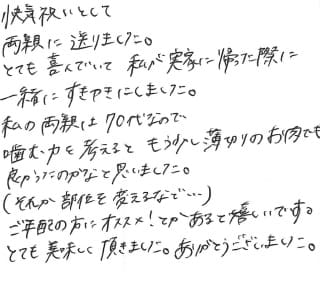 快気祝いとして
両親に送りました。
とても喜んでいて 私が実家に帰った際に
一緒にすきやきにしました。
私の両親は70代なので
噛む力を考えると もう少し薄切りのお肉でも
良かったのかなと思いました。
(それか部位を変えるなどで…)
ご年配の方にオススメ!とかあると嬉しいです。
とても美味しく頂きました。ありがとうございました。